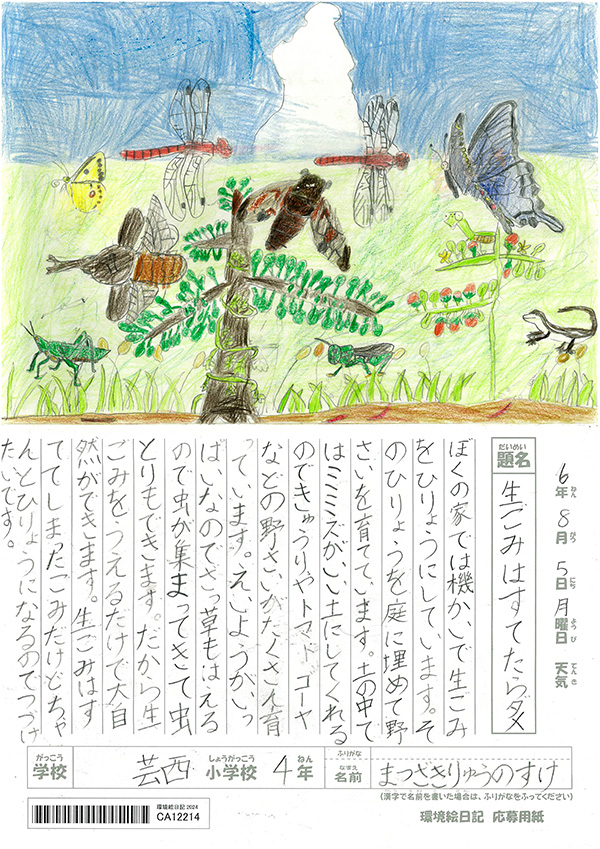 6年 8月 5日 月曜日 天気
ねん がつ にち ようび てんき
だいめい
題名 生ごみはすてたらダメ
ぼくの家では機かいで生ごみ
をひりょうにしています。そ
のひりょうを庭に埋めて野
さいを育てています。土の中で
はミミズがいい土にしてくれる
のできゅうりやトマト、ゴーヤ
などの野さいがたくさん育
っています。えいようがいっ
ぱいなのでざっ草もはえる
ので虫が集まってきて虫
とりもできます。だから生
ごみをうえるだけで大自
然ができます。生ごみはす
ててしまったごみだけどちゃ
んとひりょうになるのでつづけ
たいです。
がっこう しょうがっこう ねん ふりがな
学校 芸西 小学校 4年 なまえ 名前 まつざきりゅうのすけ
(漢字で名前を書いた場合は、ふりがなをふってください)
環境絵日記 2024
CA12214
環境絵日記 応募用紙